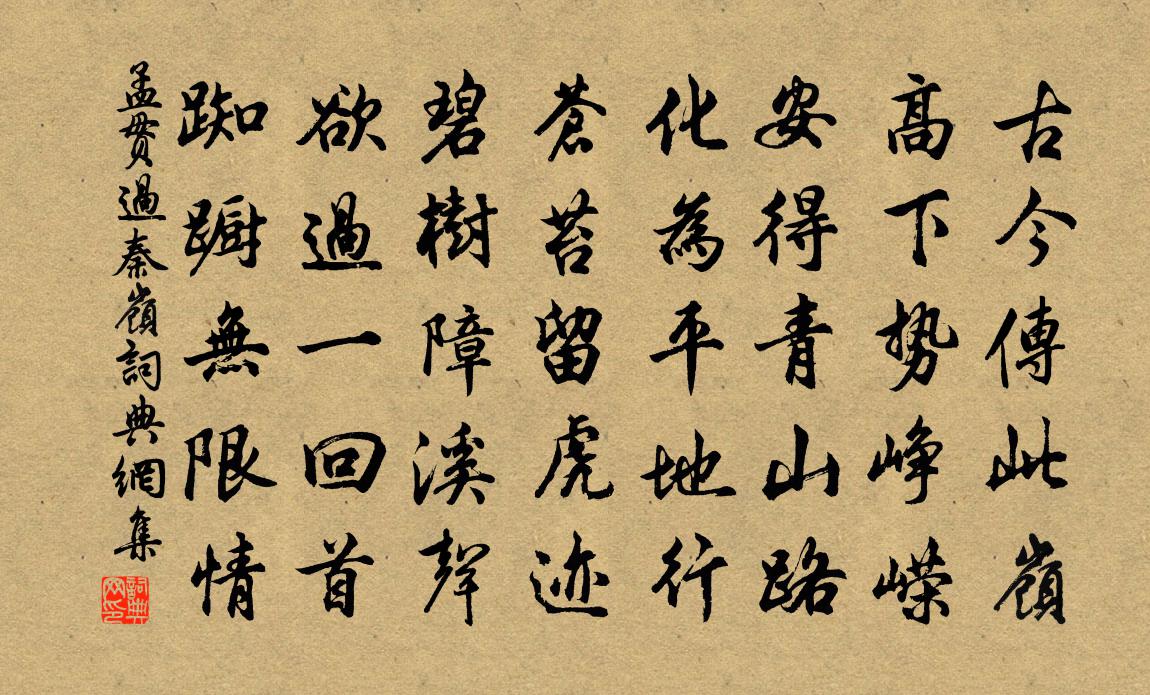 古今傳此嶺
高下勢崢嶸
安得青山路
化為平地行
蒼苔留虎迹
碧樹障溪聲
欲過一回首
踟躕無限情
孟貫過秦嶺詞典網集
詞典网印